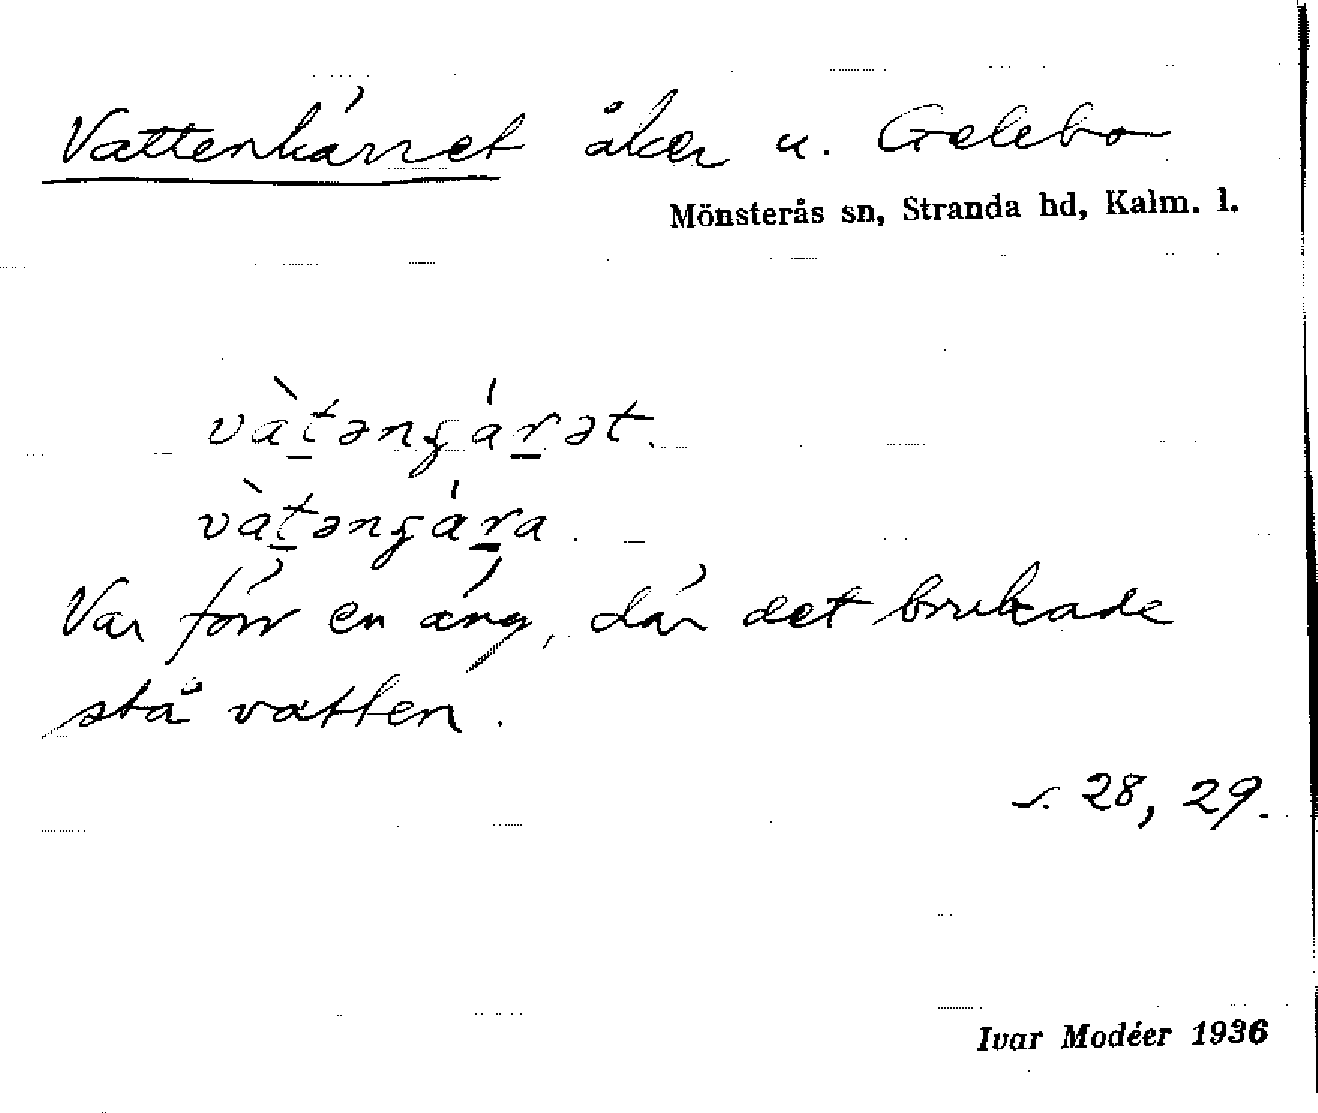 Vattenkärret åker u. Gelebo
Mönsterås sn, Stranda hd, Kalm. l.
vàt̲ənʒár̲ət.
vàt̲ənʒár̲a.
Var förr en äng, där det brukade
stå vatten.
s. 28, 29.
Ivar Modéer 1936